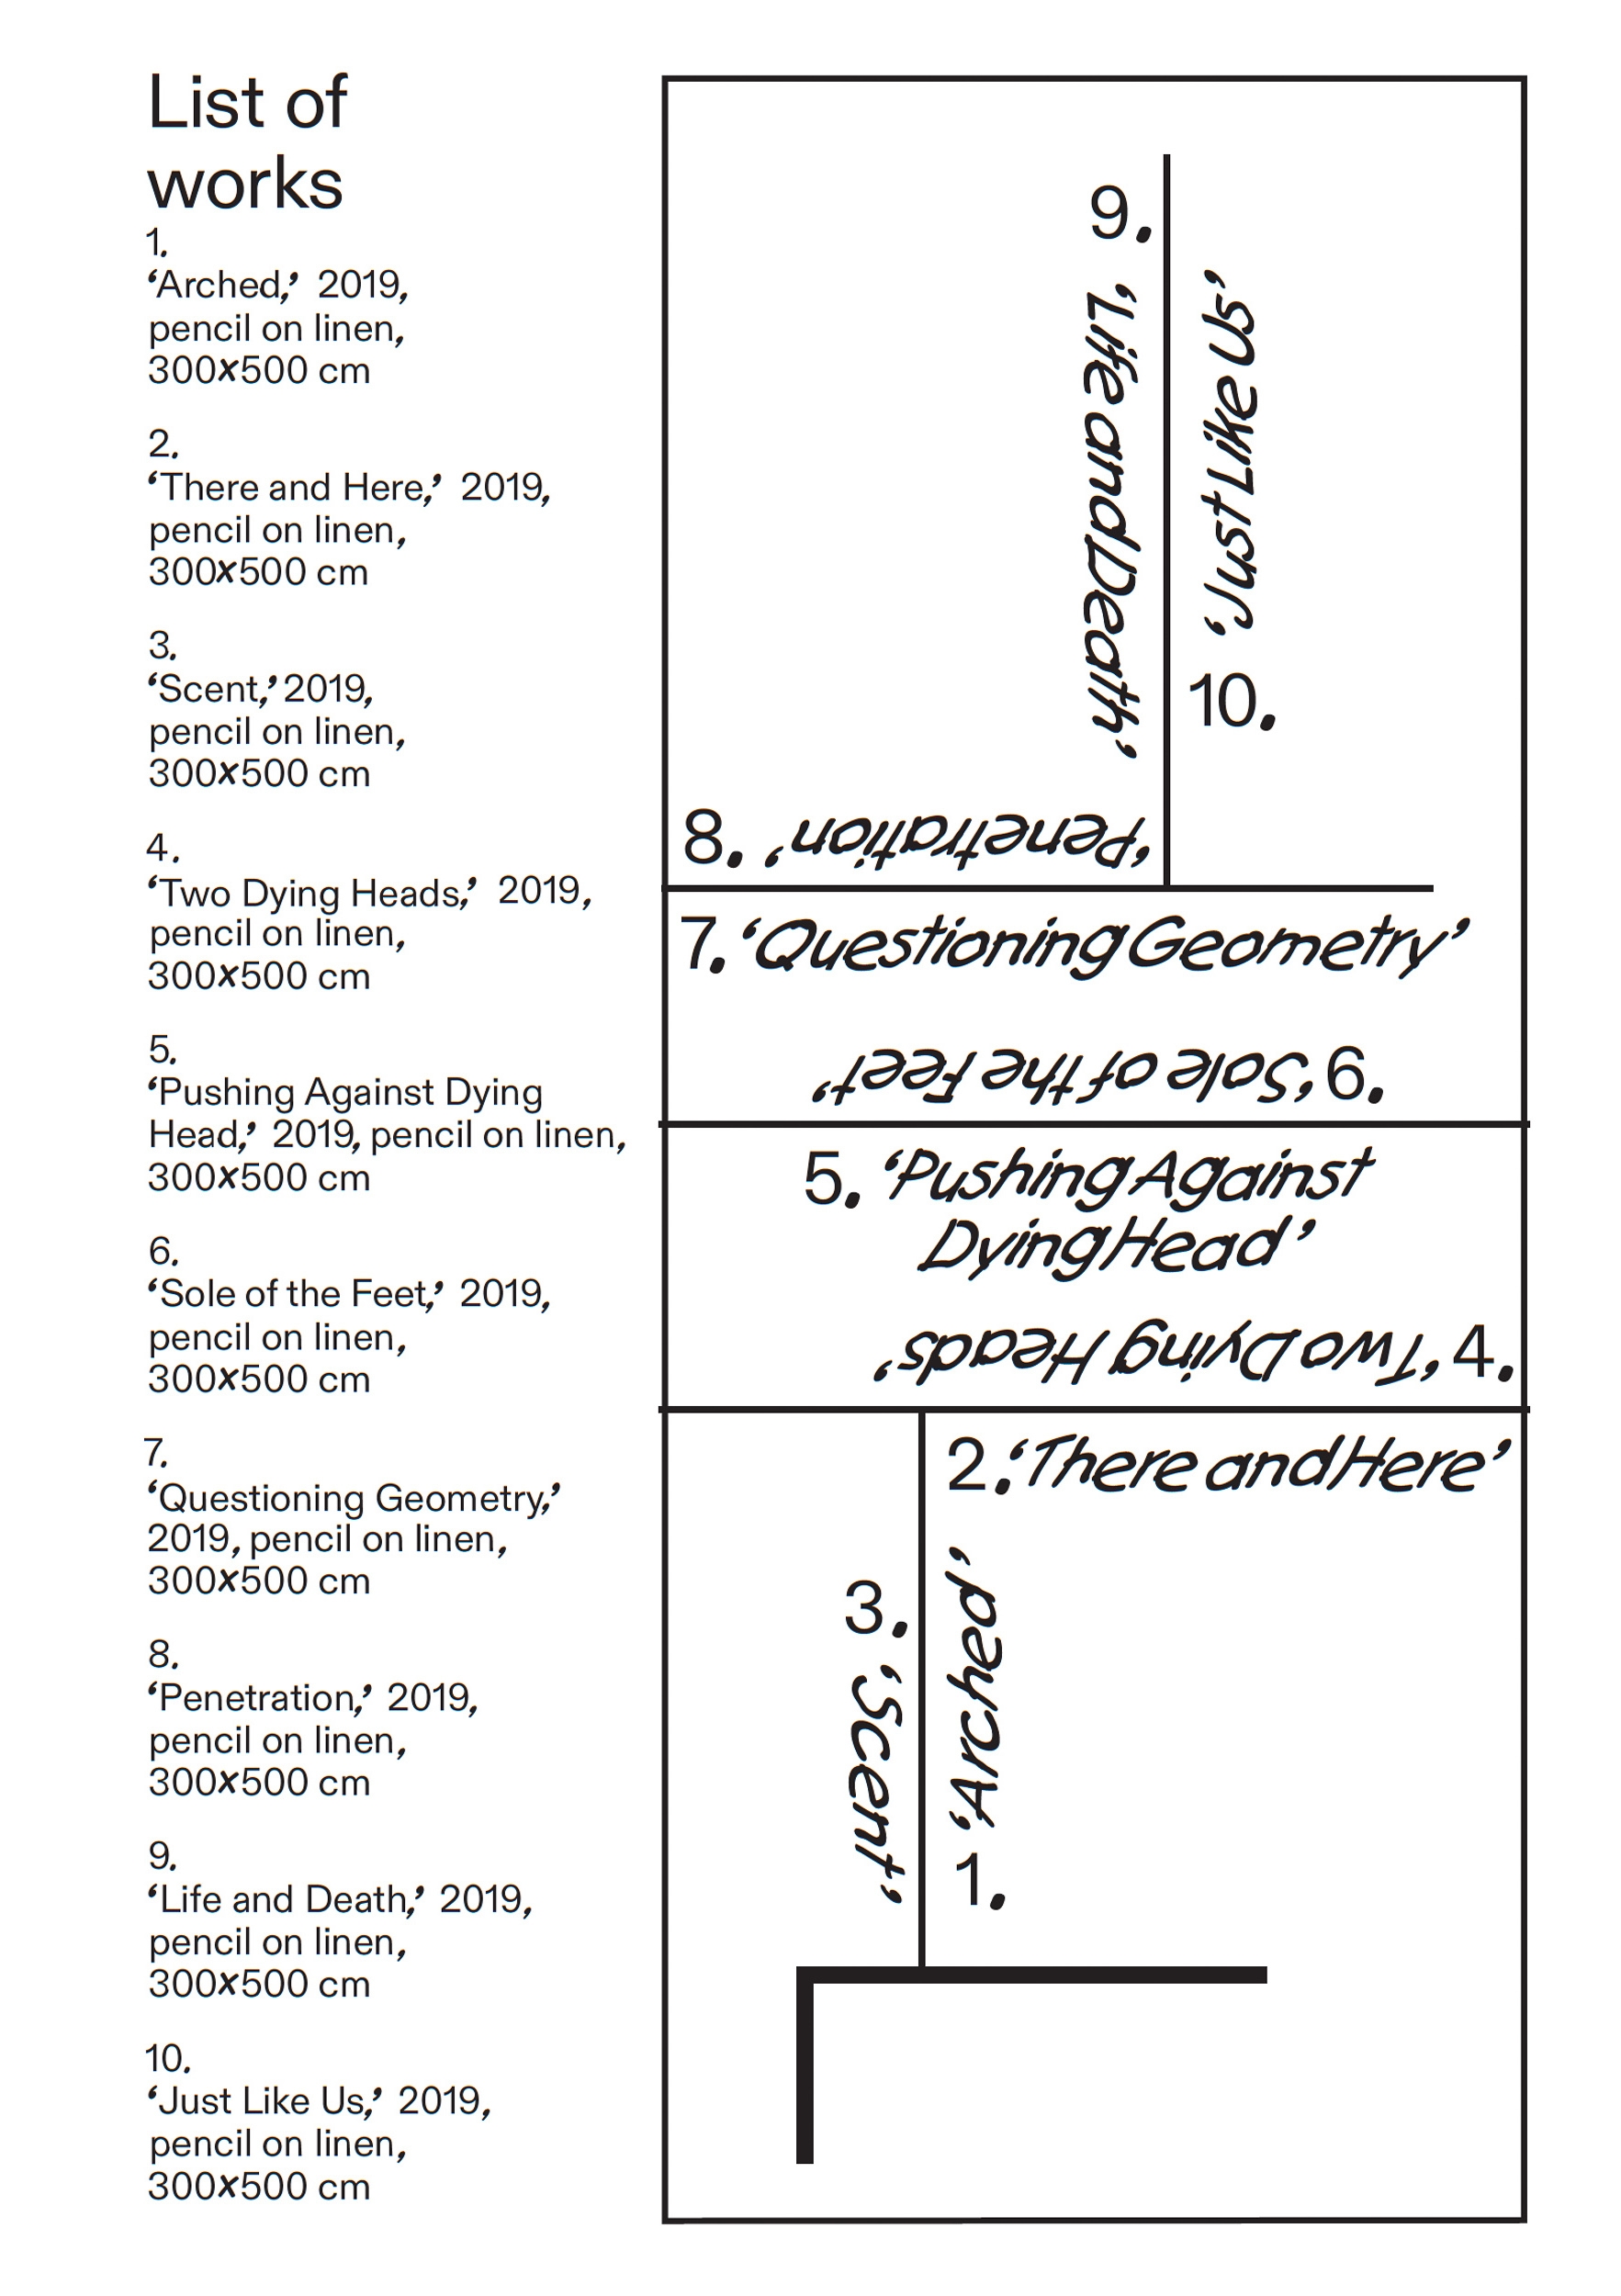 List of
works
1.
‘Arched,’ 2019,
pencil on linen,
300×500 cm
2.
‘There and Here,’ 2019,
pencil on linen,
300×500 cm
3.
‘Scent,’ 2019,
pencil on linen,
300×500 cm
4.
‘Two Dying Heads,’ 2019,
pencil on linen,
300×500 cm
5.
‘Pushing Against Dying
Head,’ 2019, pencil on linen,
300×500 cm
6.
‘Sole of the Feet,’ 2019,
pencil on linen,
300×500 cm
7.
‘Questioning Geometry,’
2019, pencil on linen,
300×500 cm
8.
‘Penetration,’ 2019,
pencil on linen,
300×500 cm
9.
‘Life and Death,’ 2019,
pencil on linen,
300×500 cm
10.
‘Just Like Us,’ 2019,
pencil on linen,
300×500 cm
9. ‘Life and Death’
10. ‘Just Like Us’
8. ‘Penetration’
7. ‘Questioning Geometry’
6. ‘Sole of the Feet’
5. ‘Pushing Against
Dying Head’
4. ‘Two Dying Heads’
2. ‘There and Here’
3. ‘Scent’
1. ‘Arched’